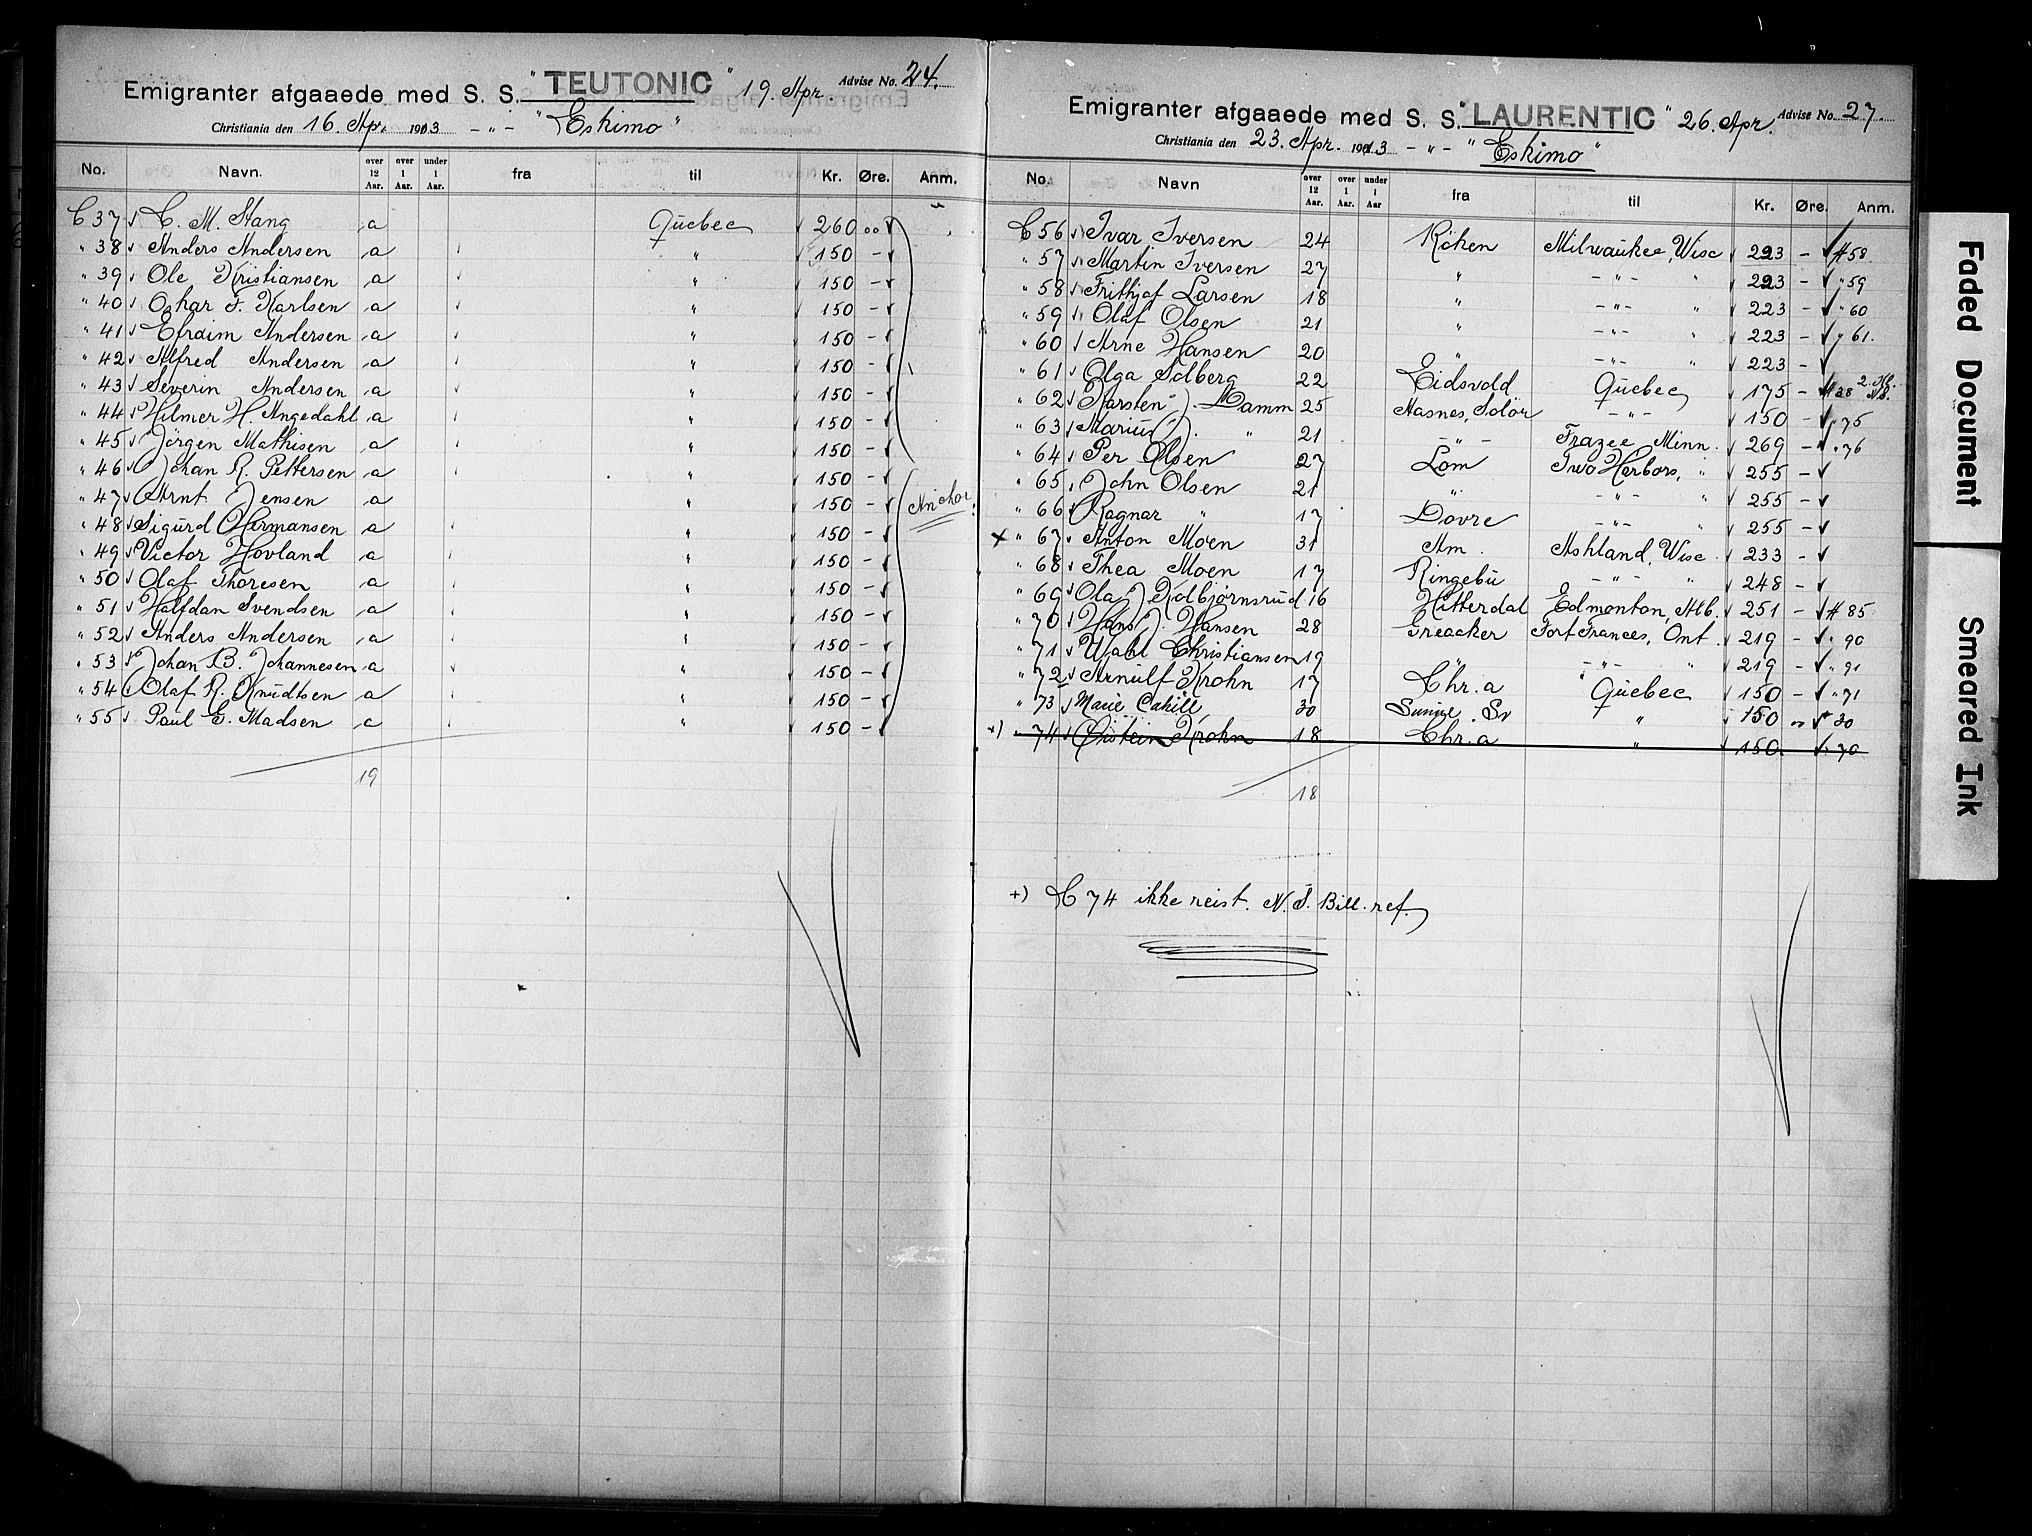 Emigranter afgaaede med S. S. "TEUTONIC" 19. Apr. Advise No. 24.
Christiania den 16. Apr. 1913 - " - "Eskimo"
No. Navn. over 12 Aar. over 1 Aar. under 1 Aar. fra til Kr. Øre. Anm.
C 37 C. M. Stang a Quebec 260 00
" 38 Anders Andersen a " 150 -
" 39 Ole Kristiansen a " 150 -
" 40 Oskar F. Karlsen a " 150 -
" 41 Efraim Andersen a " 150 -
" 42 Alfred Andersen a " 150 -
" 43 Severin Andersen a " 150 -
" 44 Hilmer H. Angedahl a " 150 -
" 45 Jörgen Mathisen a " 150 -
" 46 Johan R. Pettersen a " 150 -
" 47 Arnt Jensen a " 150 - Anchor
" 48 Sigurd Hermansen a " 150 -
" 49 Victor Hovland a " 150 -
" 50 Olaf Thoresen a " 150 -
" 51 Halfdan Svendsen a " 150 -
" 52 Anders Andersen a " 150 -
" 53 Johan B. Johannesen a " 150 -
" 54 Olaf R. Knudtsen a " 150 -
" 55 Paul G. Madsen a " 150 -
19
Emigranter afgaaede med S. S. "LAURENTIC" 26. Apr. Advise No. 27.
Christiania den 23. Apr. 1913 - " - "Eskimo"
No. Navn over 12 Aar. over 1 Aar. under 1 Aar fra til Kr. Øre. Anm.
C 56 Ivar Iversen 24 Röken Milwaukee, Wisc 223 - # 58
" 57 Martin Iversen 27 " - " - " 223 - " 59
" 58 Frithjof Larsen 18 " - " - " 223 - " 60
" 59 Olaf Olsen 21 " - " - " 223 - " 61.
" 60 Arne Hansen 20 " - " - " 223 -
" 61 Olga Solberg 22 Eidsvold Quebec 175 - # 28 2. Kl.
" 62 Karsten J. Mamm 25 Aasnes, Solör - " - 150 - " 75
" 63 Marius J. " 21 - " - Frazee Minn. 269 - " 76
" 64 Per Olsen 27 Lom Two Harbors, " 255 -
" 65 John Olsen 21 " - " - " 255 -
" 66 Ragnar " 17 Dovre - " - " 255 -
x " 67 Anton Moen 31 Am. Ashland, Wisc. 233 -
" 68 Thea Moen 17 Ringebu - " - " 248 -
" 69 Ola J Kolbjørnsrud 16 Hitterdal Edmonton, Alb. 251 - # 85
" 70 Hans J. Hansen 28 Greaaker Fort Frances, Ont. 219 - " 90
" 71 Wahl Christiansen 19 " - " - " 219 - " 91
" 72 Arnulf Krohn 17 Chr.a Quebec 150 - " 71
" 73 Marie Cahill 30 Sv " 150 " 30
+) " 74 Øistein Krohn 18 Chr.a " 150. " 70
18
+) C 74 ikke reist. N. S. Bill. ref.
Faded Document
Smeared Ink